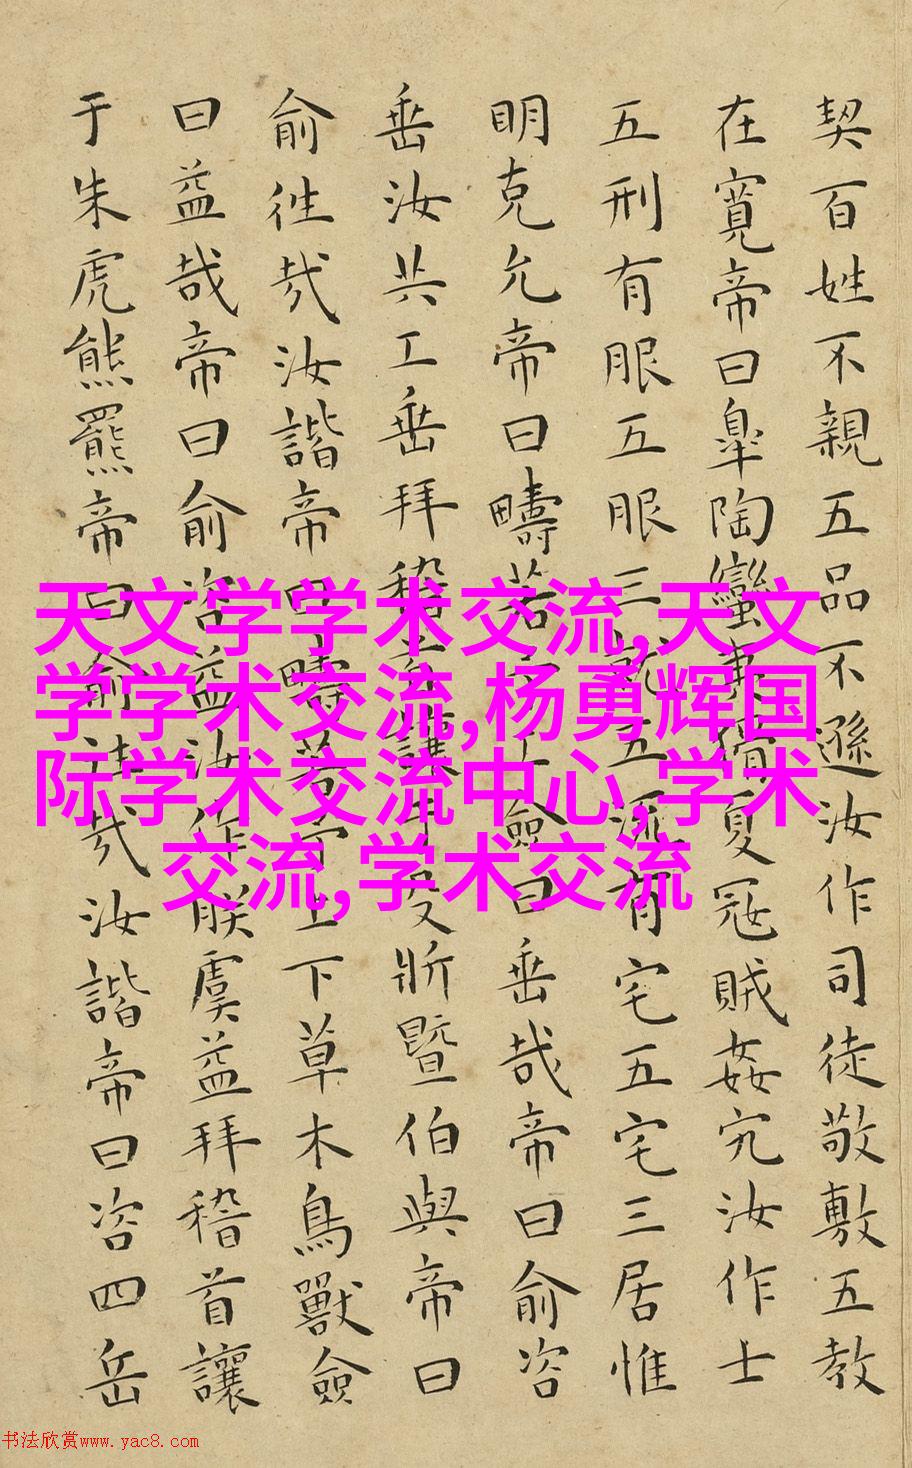 契百姓不親五品不遜汝作司徒敬敷五教
在寬帝曰皐陶蠻夷猾夏冦賊姦宄汝作士
五刑有服五服三就五流有宅五宅三居惟
明克允帝曰疇若予工僉曰垂哉帝曰俞咨
垂汝共工垂拜稽首讓于殳斨暨伯與帝曰
俞徃哉汝諧帝曰疇若予上下草木鳥獸僉
曰益哉帝曰俞咨益汝作朕虞益拜稽首讓
于朱虎熊羆帝曰俞徃哉汝諧帝曰咨四岳
天文学学术交流,天文
学学术交流,杨勇辉国
际学术交流中心,学术
交流,学术交流
书法欣赏www.yac8.com